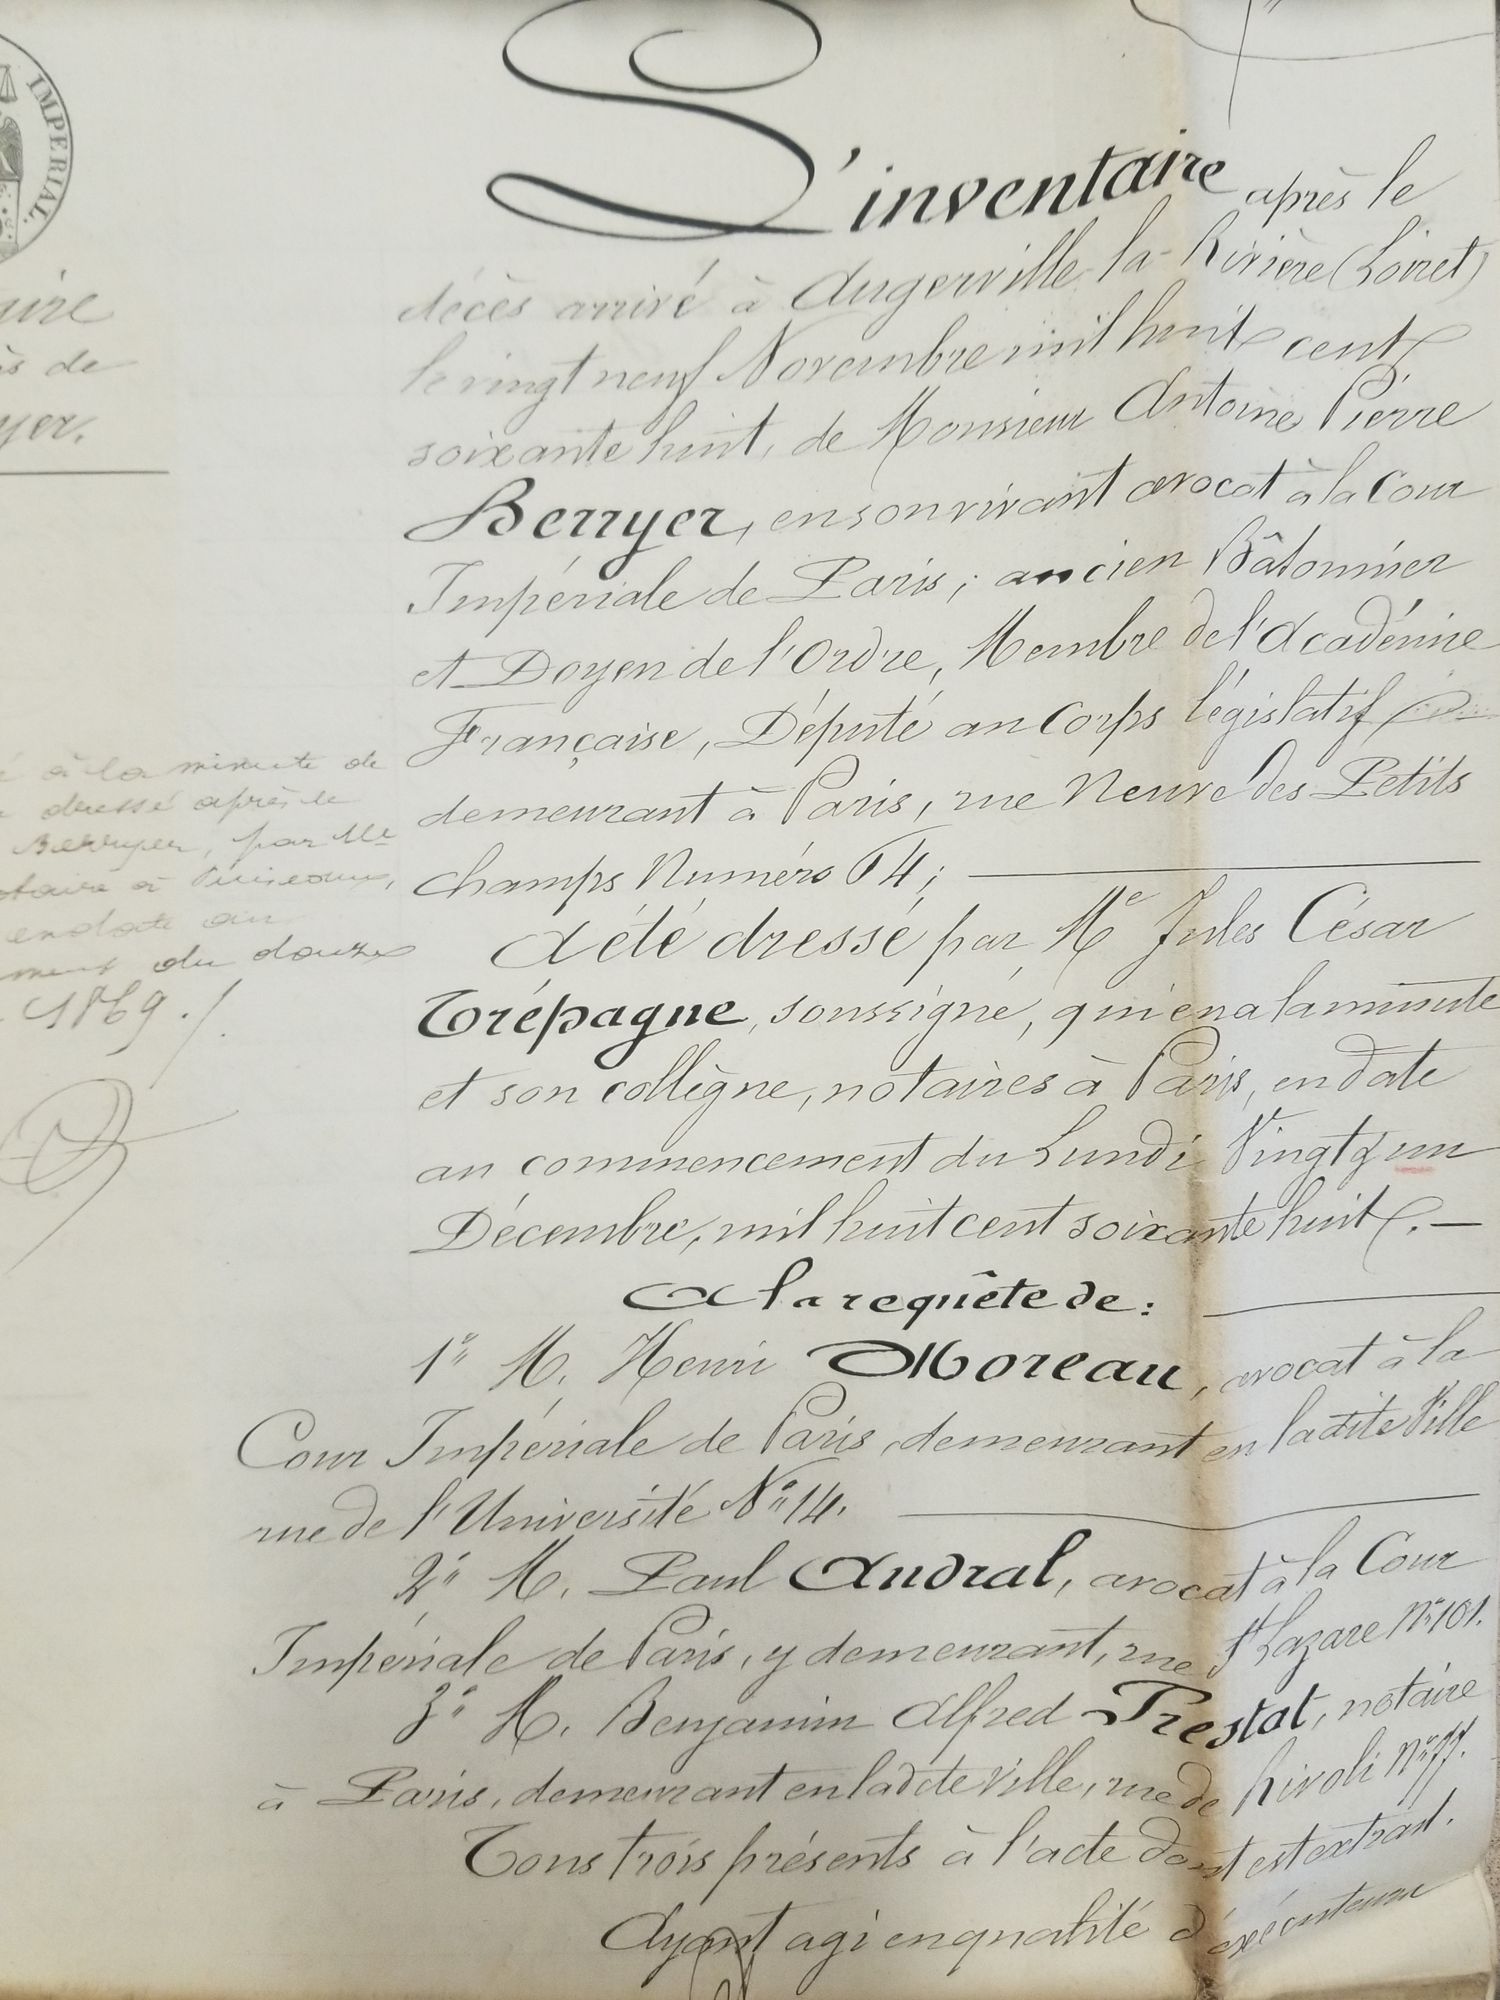 IMPERIAL.
L'inventaire après le
décès arrivé à Augerville-la-Rivière (Loiret)
le vingt neuf Novembre mil huit cent
soixante huit, de Monsieur Antoine Pierre
Berryer, en son vivant avocat à la Cour
Impériale de Paris; ancien Bâtonnier
et Doyen de l'Ordre, Membre de l'Académie
Française, Député au Corps législatif
demeurant à Paris, rue Neuve des Petits
champs Numéro 64;
A été dressé par Me Jules César
Trépagne, soussigné, qui en a la minute
et son collègue, notaires à Paris, en date
au commencement du Lundi Vingt & un
Décembre, mil huit cent soixante huit. —
A la requête de:
1° M. Henri Moreau, avocat à la
Cour Impériale de Paris, demeurant en ladite Ville
rue de l'Université N° 14.
2° M. Paul Andral, avocat à la Cour
Impériale de Paris, y demeurant, rue St Lazare N° 101.
3° M. Benjamin Alfred Prestat, notaire
à Paris, demeurant en ladite Ville, rue de Rivoli N° 77.
Tous trois présents à l'acte dont est extrait.
Ayant agi en qualité d'exécuteurs
aire
ès de
yer.
é à la minute de
dressé après le
Berryer, par Me
otaire à Puiseaux,
en date au
ment du douze
1869./.